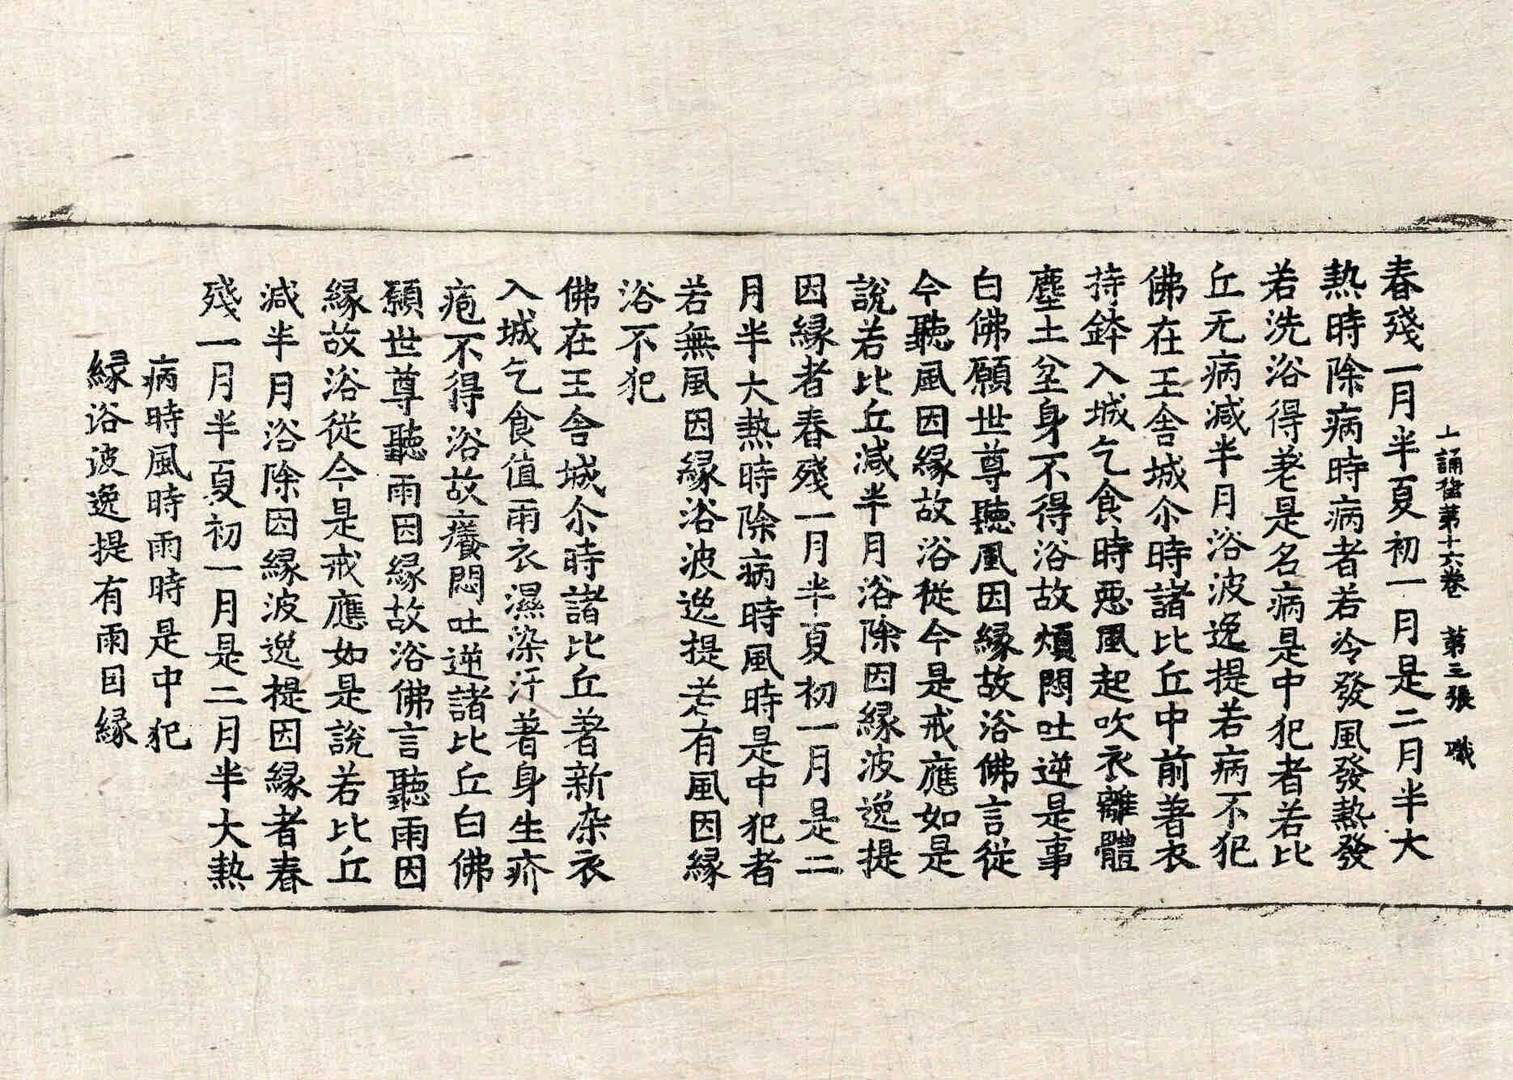 十誦律第十六卷 第三張 職
春殘一月半夏初一月是二月半大
熱時除病時病者若冷發風發熱發
若洗浴得差是名病是中犯者若比
丘无病減半月浴波逸提若病不犯
佛在王舍城尒時諸比丘中前著衣
持鉢入城乞食時惡風起吹衣離體
塵土坌身不得浴故煩悶吐逆是事
白佛願世尊聽風因緣故浴佛言從
今聽風因緣故浴從今是戒應如是
說若比丘減半月浴除因緣波逸提
因緣者春殘一月半夏初一月是二
月半大熱時除病時風時是中犯者
若無風因緣浴波逸提若有風因緣
浴不犯
佛在王舍城尒時諸比丘著新染衣
入城乞食值雨衣濕染汙著身生疥
疱不得浴故癢悶吐逆諸比丘白佛
願世尊聽雨因緣故浴佛言聽雨因
緣故浴從今是戒應如是說若比丘
減半月浴除因緣波逸提因緣者春
殘一月半夏初一月是二月半大熱
病時風時雨時是中犯
緣浴波逸提有雨因緣